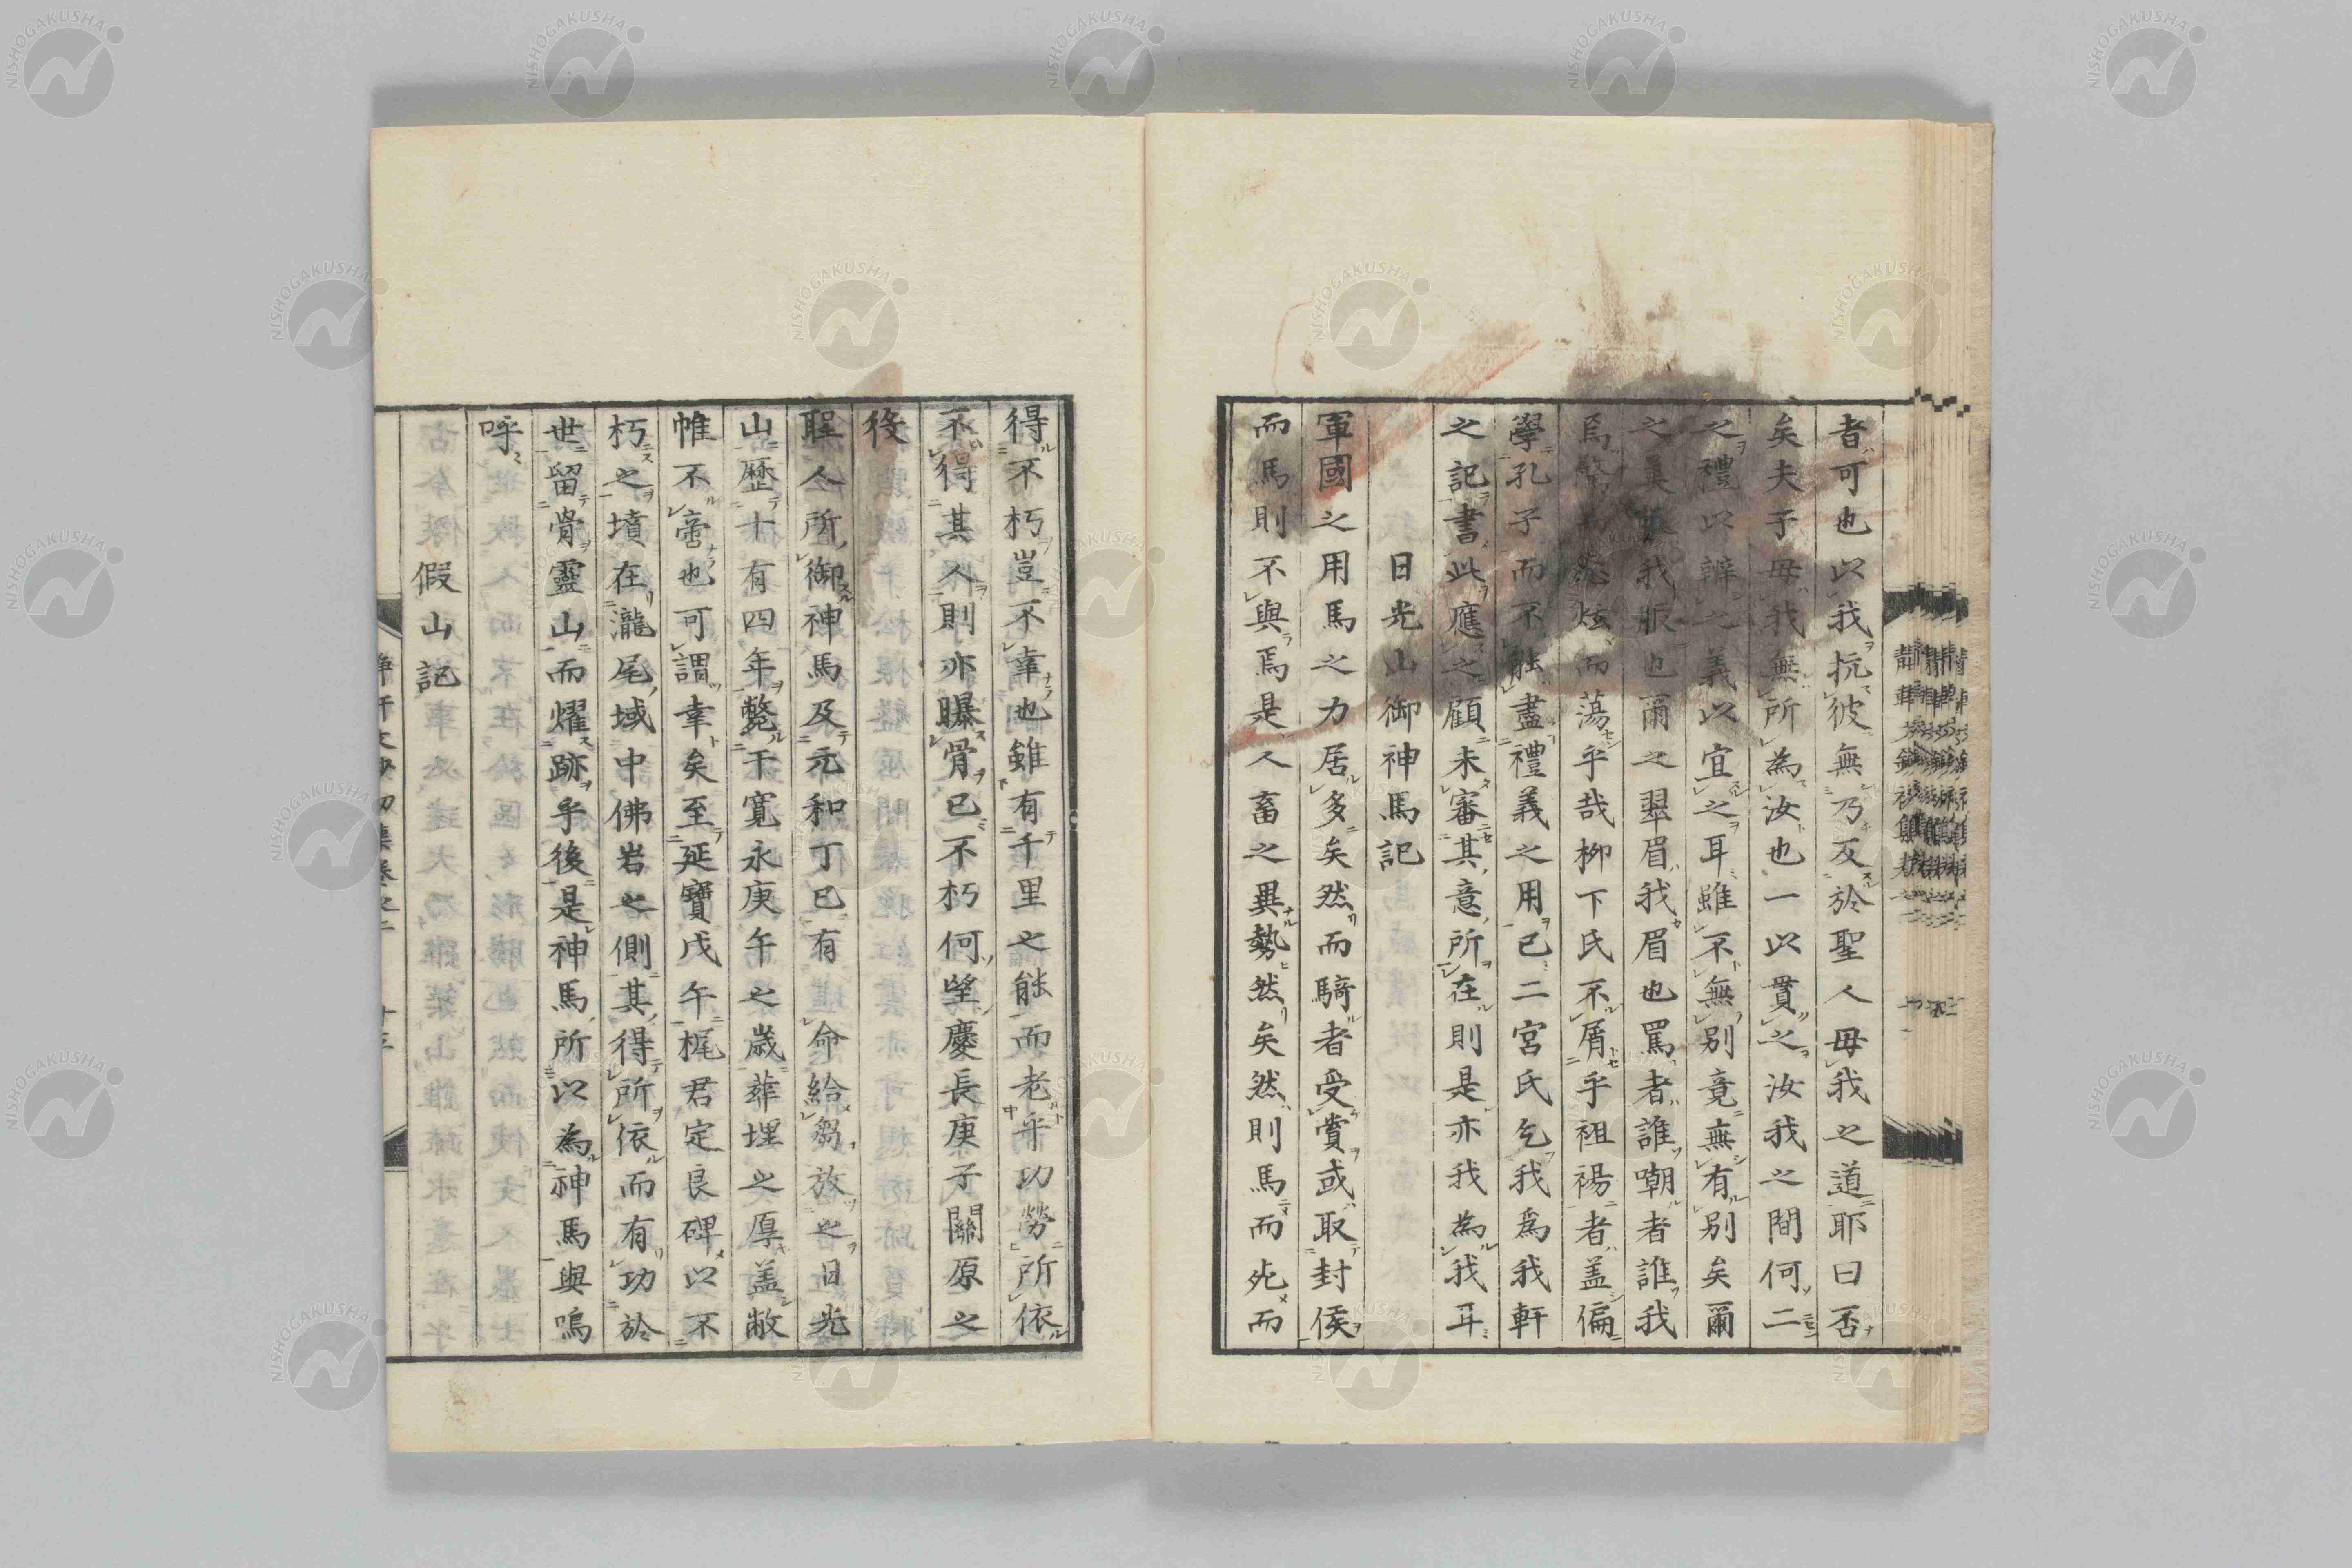 者可也以我抗彼無乃反於聖人毋我之道耶曰否
矣夫子毋我無所為汝也一以貫之汝我之間何二
之禮以辨之義以宜之耳雖不無別竟無有別矣爾
之美 我服也爾之翠眉我眉也罵者誰嘲者誰我
焉 炫而蕩乎哉柳下氏不屑乎袒裼者盖偏
學孔子而不能盡禮義之用已二宮氏乞我為我軒
之記書此應之顧未審其意所在則是亦我為我耳
日光山御神馬記
軍國之用馬之力居多矣然而騎者受賞或取封侯
而馬則不與焉是人畜之異勢然矣然則馬而死而
得不朽豈不幸也雖有千里之能而老乎功勞所依
不得其人則亦曝骨已不朽何望慶長庚子關原之
役
聖人所御神馬及元和丁巳有 命給芻放之日光
山歷十有四年斃于寬永庚午之歲葬埋之厚盖敝
帷不啻也可謂幸矣至延寶戊午梶君定良碑以不
朽之墳在瀧尾域中佛岩之側其得所依而有功於
世留骨靈山而燿跡乎後是神馬所以為神馬與嗚
呼
假山記
NISHOGAKUSHA